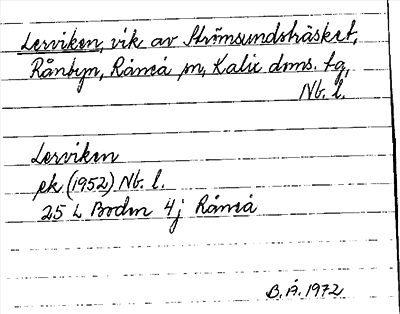 Lerviken, vik av Strömsundsträsket,
Rånbyn, Råneå sn, Kalix doms. tg,
Nb. l.
Lerviken
ek (1952) Nb. l.
25 L Boden 4j Råneå
B.Å. 1972